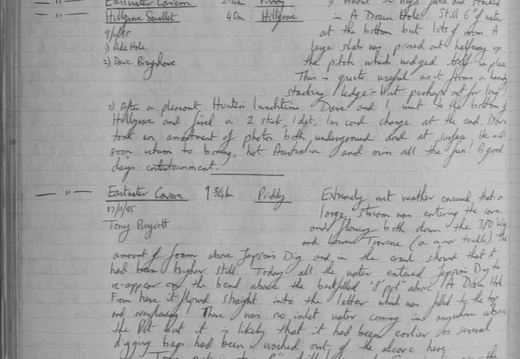 — " — Eastwater Cavern Priddy
Hillgrove Swallet 4 Cm Hillgrove in A Drain Hole. Still 6" of water
9/1/95 at the bottom but lots of room. A
1) Ade Hole large slab was prised out halfway up
2) Dave the pitch which wedged itself in place
This is quite useful as it forms a handy
stacking ledge - but perhaps not for long!
2) After a pleasant Hunters lunchtime Dave and I went to the bottom of
Hillgrove and fired a 2 shot, 1 det. charge at the end. Dave
took an assortment of photos both underground and at surface. He will
soon return to boring, hot Australia and miss all the fun! A good
day's entertainment.
— " — Eastwater Cavern 1 3/4h Priddy Extremely wet weather ensured that a
12/1/95 large stream was entering the cave
Tony and flowing both down the 380' Way
and Lower Traverse (a mere trickle). The
amount of foam above Japson's Dig and in the crawl showed that it
had been higher still. Today all the water entered Japson's Dig to
re-appear on the bend above the backfilled "8' pot" above "A Drain Hole
From here it flowed straight into the latter which was filled to the top
and overflowing! There was no inlet water coming in anywhere above
the Pot but it is likely that it had been earlier as several
digging bags had been washed out of the alcove here.